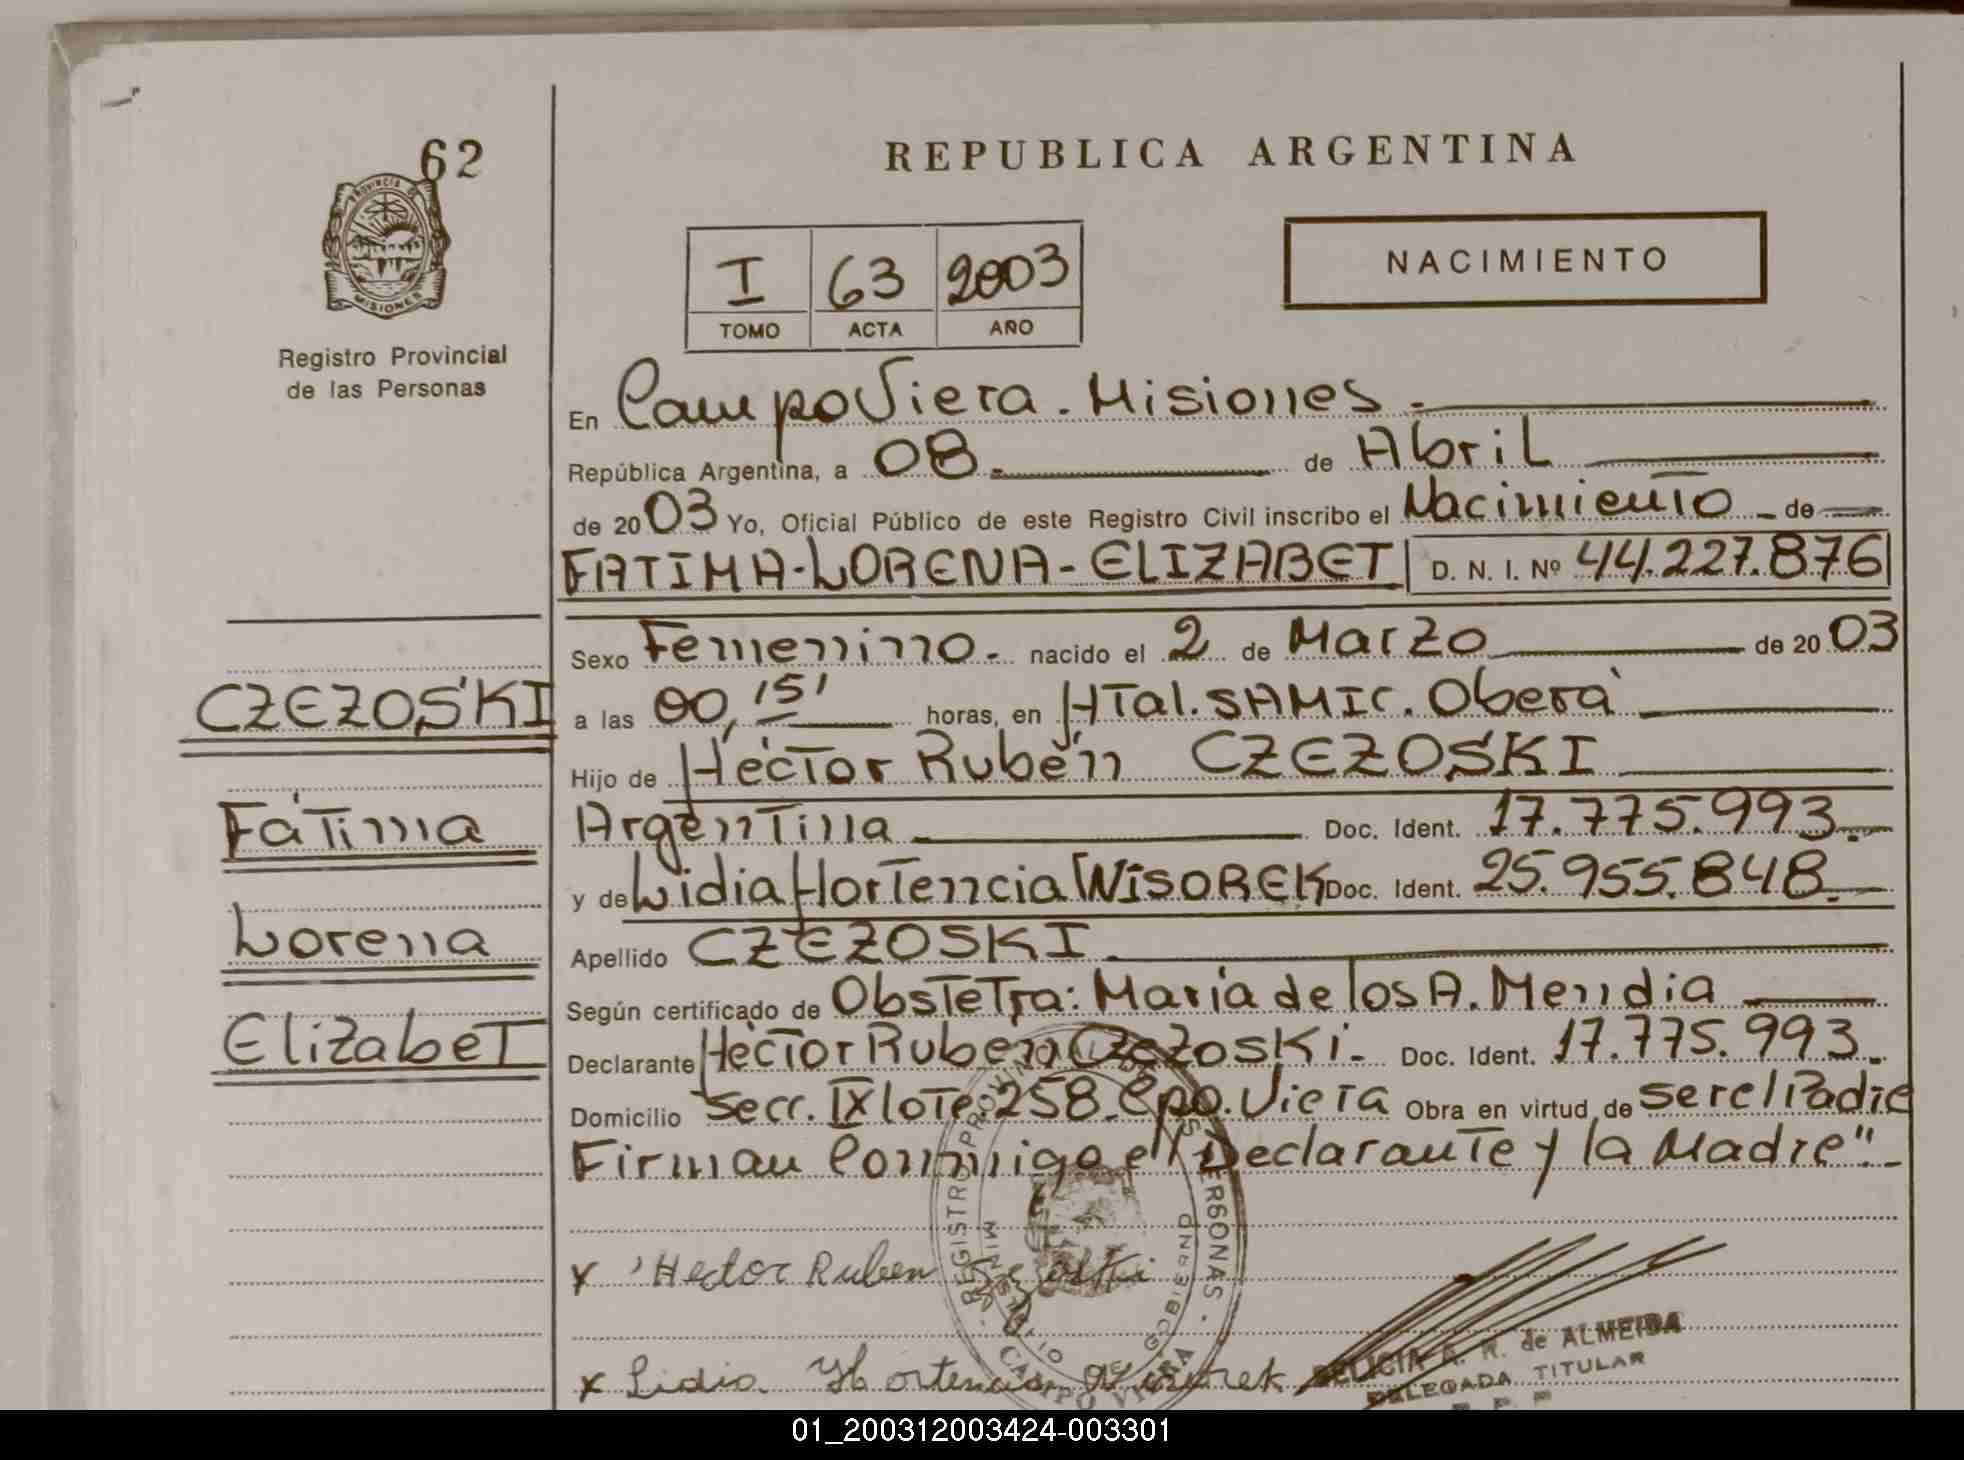 62
PROVINCIA DE
MISIONES
Registro Provincial
de las Personas
CZEZOSKI
Fátima
Lorena
Elizabet
REPUBLICA ARGENTINA
I 63 2003
TOMO ACTA AÑO
NACIMIENTO
En Campo Viera. Misiones.
República Argentina, a 08. de Abril
de 2003 Yo, Oficial Público de este Registro Civil inscribo el Nacimiento de
FATIMA-LORENA-ELIZABET D. N. I. Nº 44.227.876
Sexo Femenino. nacido el 2 de Marzo de 2003
a las 00,15' horas, en HTal. SAMIC. Oberá
Hijo de Héctor Rubén CZEZOSKI
Argentina Doc. Ident. 17.775.993.
y de Lidia Hortencia WISOREK Doc. Ident. 25.955.848.
Apellido CZEZOSKI.
Según certificado de Obstetra: María de los A. Mendia
Declarante Héctor Ruben Czezoski. Doc. Ident. 17.775.993.
Domicilio Secc. IX lote. 258. Cpo. Viera Obra en virtud de ser el Padre
Firman Conmigo el Declarante y la Madre".
REGISTRO PROVINCIAL DE LAS PERSONAS
MINISTERIO DE GOBIERNO
CAMPO VIERA
x Hector Ruben
x Lidia Hortencia
DELICIA A. R. de ALMEIDA
DELEGADA TITULAR
01_200312003424-003301